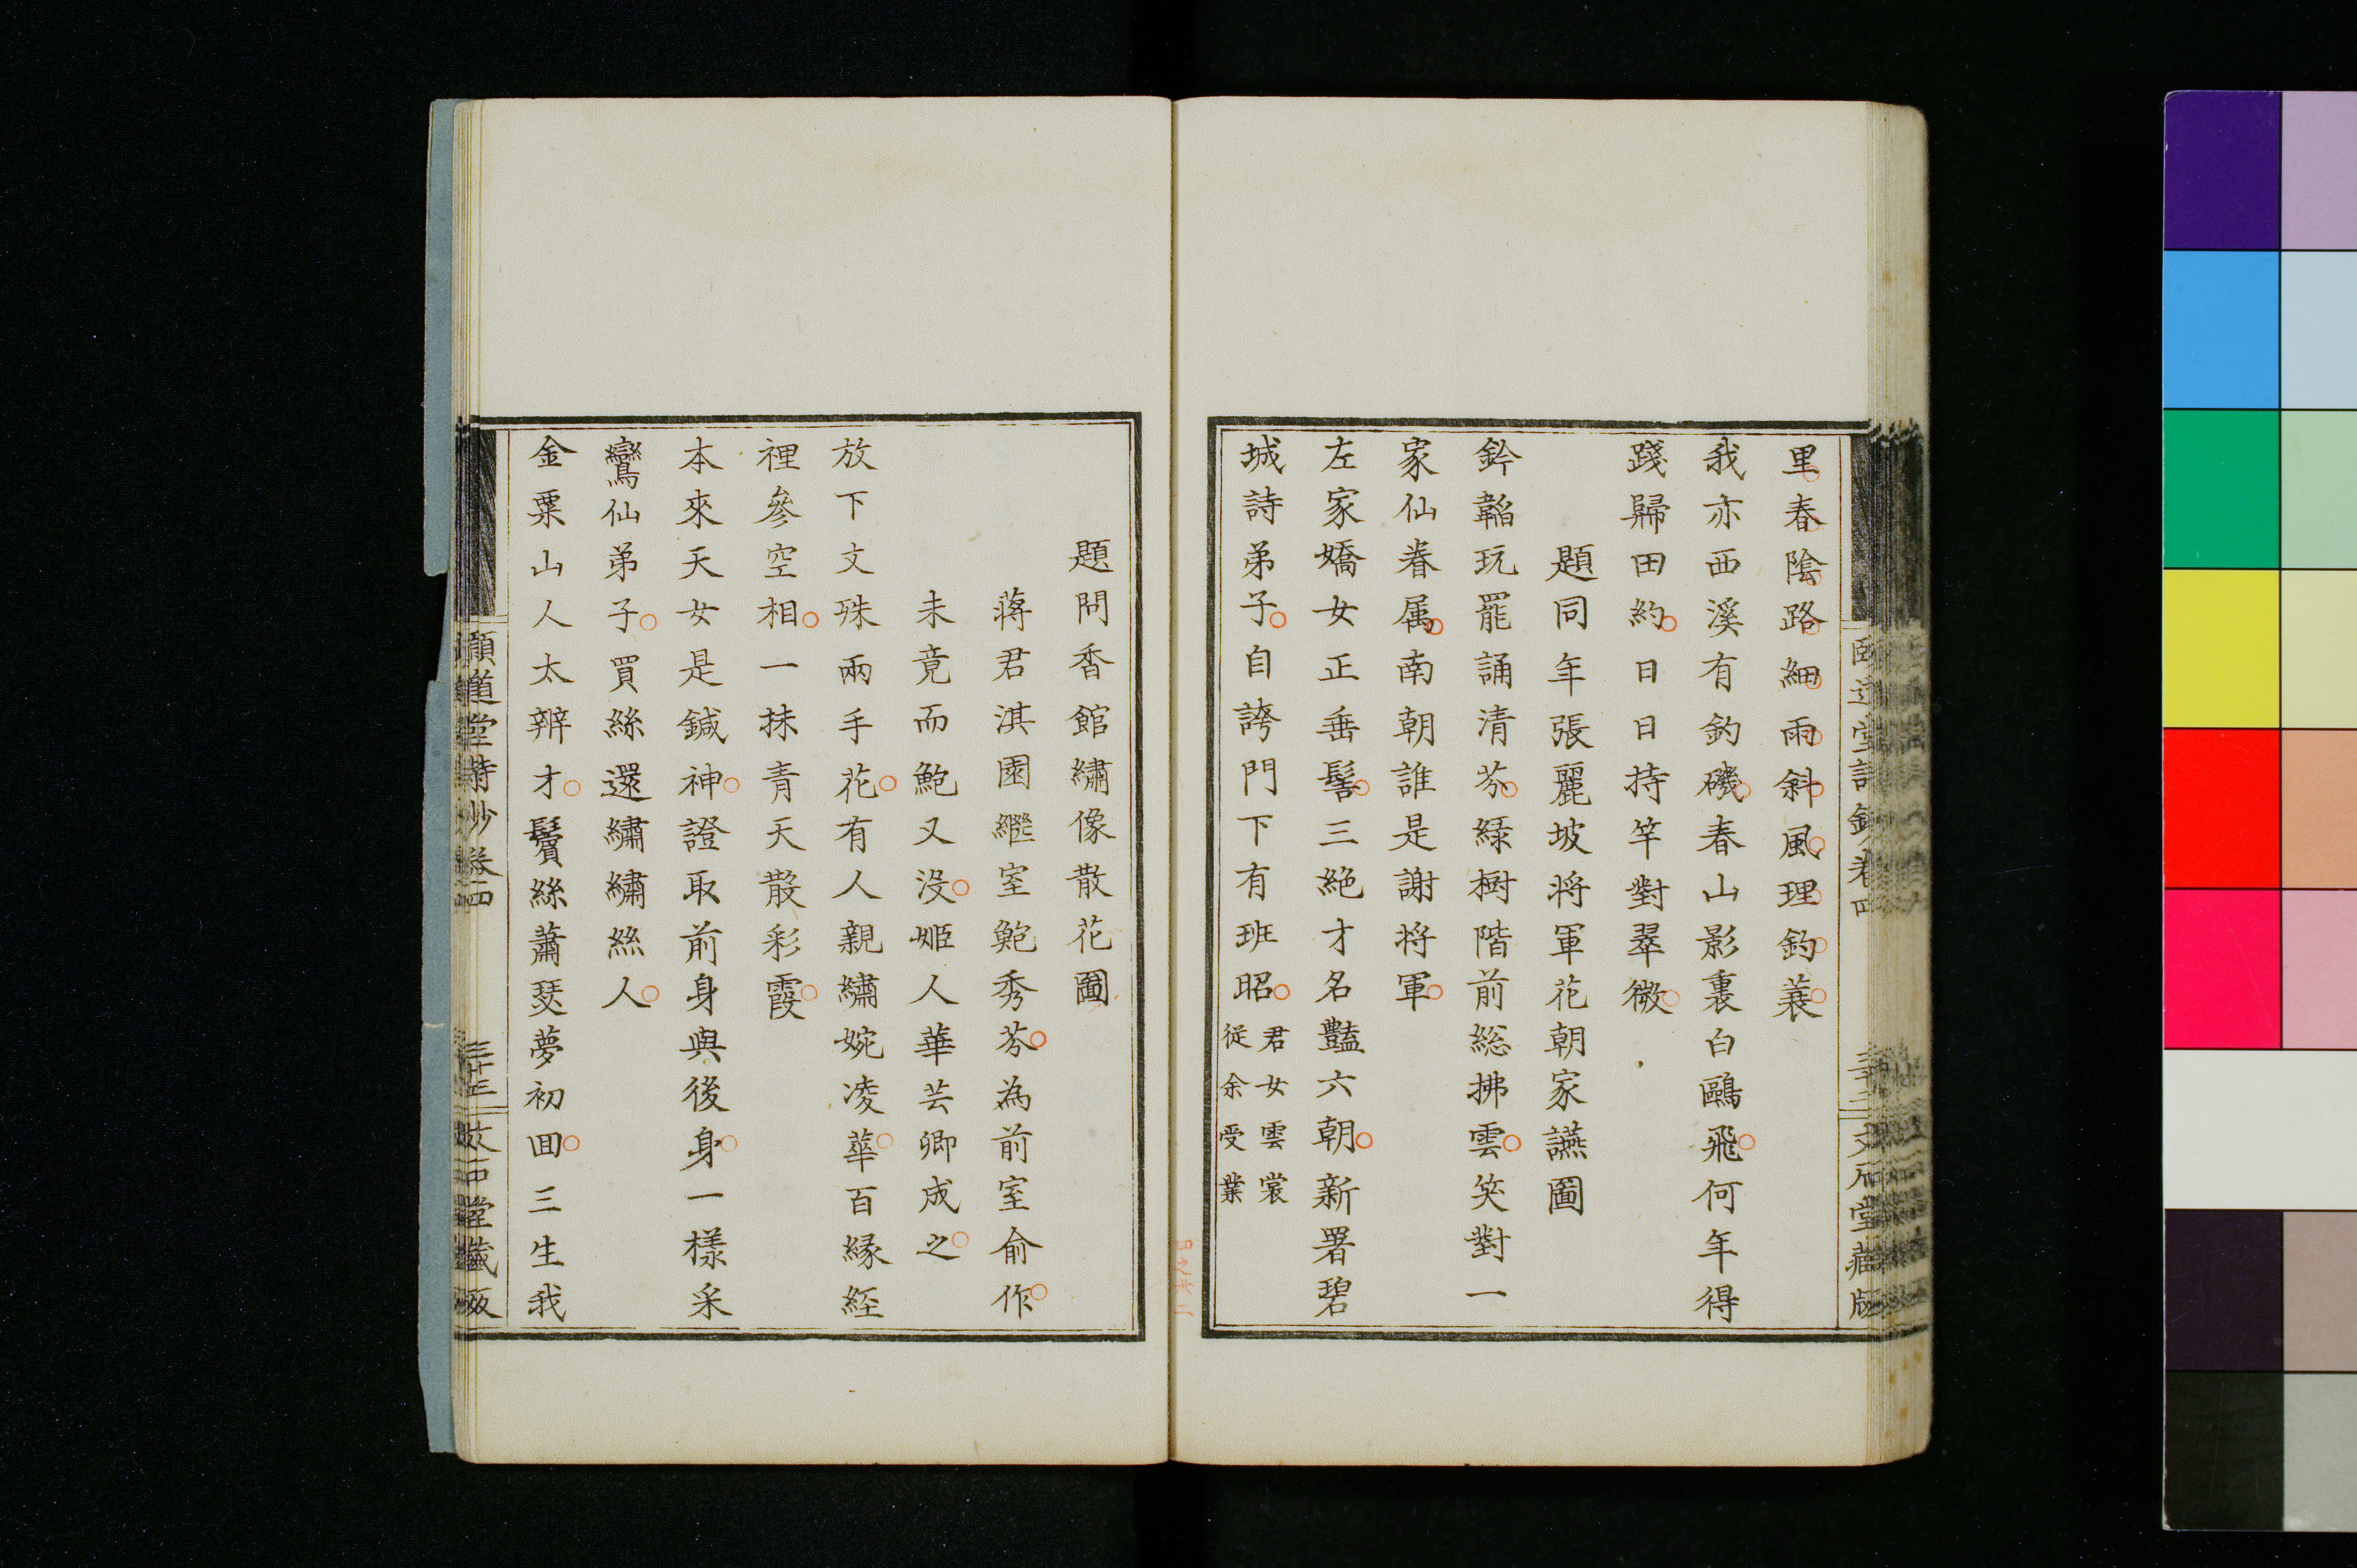 里春陰路細雨斜風理釣蓑
我亦西溪有釣磯春山影裏白鷗飛何年得
踐歸田約日日持竿對翠微
題同年張麗坡將軍花朝家讌圖
鈐韜玩罷誦清芬綠樹階前總拂雲笑對一
家仙眷属南朝誰是謝將軍
左家嬌女正垂髫三絕才名豔六朝新署碧
城詩弟子自誇門下有班昭君女雲裳
從余受業
題問香館繡像散花圖
蔣君淇園繼室鮑秀芬為前室俞作
未竟而鮑又没姬人華芸卿成之
放下文殊兩手花有人親繡婉凌華百緣經
裡參空相一抹青天散彩霞
本來天女是鍼神證取前身與後身一樣采
鸞仙弟子買絲還繡繡絲人
金粟山人太辨才鬢絲蕭瑟夢初回三生我
頤道堂詩鈔卷四
三十三